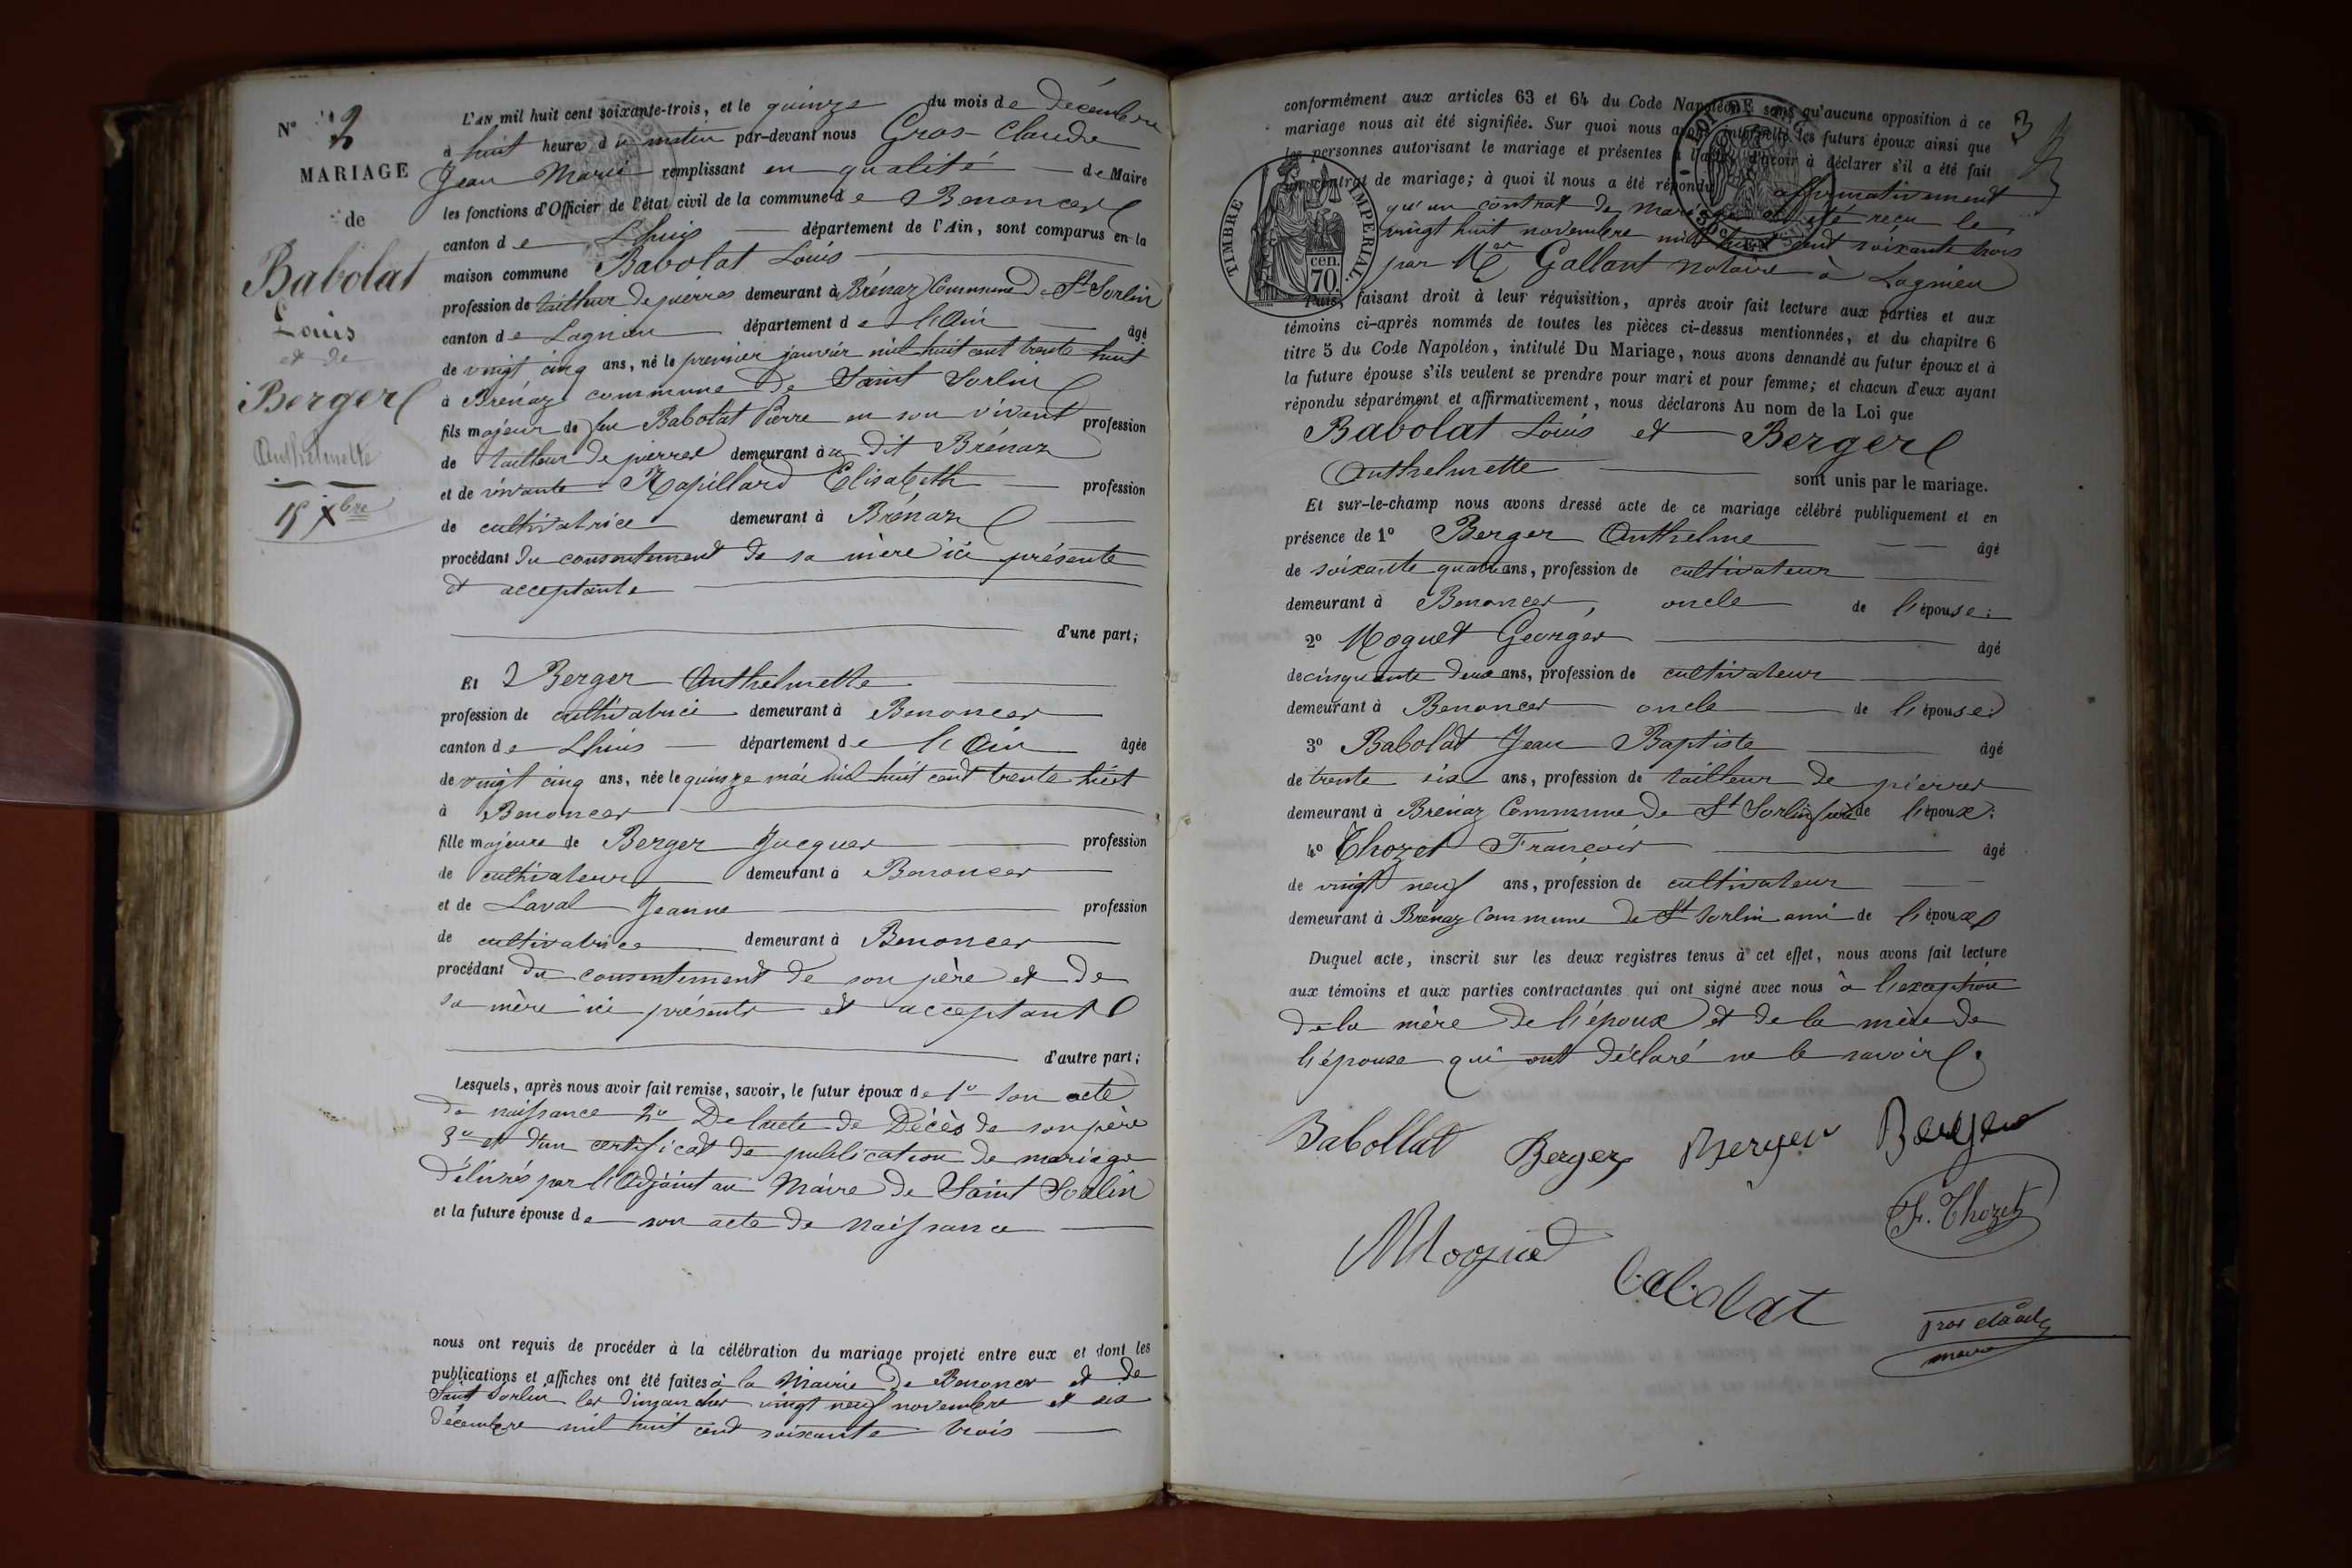 N° 2
MARIAGE
de
Babolat
Louis
et de
Berger
Anthelmette
15 Xbre
L'AN mil huit cent soixante-trois, et le quinze du mois de Décembre
à huit heures du matin par-devant nous Gros-Claude
Jean Marie remplissant en qualité de Maire
les fonctions d'Officier de l'état civil de la commune de Benonces
canton de Lhuis département de l'Ain, sont comparus en la
maison commune Babolat Louis
profession de tailleur de pierres demeurant à Brénaz Commune de St Sorlin
canton de Lagnieu département de l'Ain âgé
de vingt cinq ans, né le premier janvier mil huit cent trente huit
à Brénaz commune de Saint Sorlin
fils majeur de feu Babolat Pierre en son vivant profession
de tailleur de pierres demeurant au dit Brénaz
et de vivante Rapillard Elisabeth profession
de cultivatrice demeurant à Brénaz
procédant du consentement de sa mère ici présente
et acceptante
d'une part;
Et Berger Anthelmette
profession de cultivatrice demeurant à Benonces
canton de Lhuis département de l'Ain âgée
de vingt cinq ans, née le quinze mai mil huit cent trente huit
à Benonces
fille majeure de Berger Jacques profession
de cultivateur demeurant à Benonces
et de Laval Jeanne profession
de cultivatrice demeurant à Benonces
procédant du consentement de son père et de
sa mère ici présents et acceptant
d'autre part;
Lesquels, après nous avoir fait remise, savoir, le futur époux de 1° son acte
de naissance 2° De l'acte de Décès de son père
3° et d'un certificat de publication de mariage
délivrés par l'Adjoint au Maire de Saint Sorlin
et la future épouse de son acte de naissance
nous ont requis de procéder à la célébration du mariage projeté entre eux et dont les
publications et affiches ont été faites à la Mairie de Benonces et de
Saint Sorlin les dimanches vingt neuf novembre et six
décembre mil huit cent soixante trois
3
conformément aux articles 63 et 64 du Code Napoléon, sans qu'aucune opposition à ce
mariage nous ait été signifiée. Sur quoi nous avons interpellé les futurs époux ainsi que
les personnes autorisant le mariage et présentes à l'acte, d'avoir à déclarer s'il a été fait
un contrat de mariage; à quoi il nous a été répondu affirmativement
qu'un contrat de mariage a été reçu le
vingt huit novembre mil huit cent soixante trois
par Me Gallant notaire à Lagnieu
TIMBRE IMPERIAL
70 cen.
Puis, faisant droit à leur réquisition, après avoir fait lecture aux parties et aux
témoins ci-après nommés de toutes les pièces ci-dessus mentionnées, et du chapitre 6
titre 5 du Code Napoléon, intitulé Du Mariage, nous avons demandé au futur époux et à
la future épouse s'ils veulent se prendre pour mari et pour femme; et chacun d'eux ayant
répondu séparément et affirmativement, nous déclarons Au nom de la Loi que
Babolat Louis et Berger
Anthelmette
sont unis par le mariage.
Et sur-le-champ nous avons dressé acte de ce mariage célébré publiquement et en
présence de 1° Berger Anthelme âgé
de soixante quatre ans, profession de cultivateur
demeurant à Benonces, oncle de l'épouse;
2° Moguet Georges âgé
de cinquante deux ans, profession de cultivateur
demeurant à Benonces oncle de l'épouse;
3° Babolat Jean Baptiste âgé
de trente six ans, profession de tailleur de pierres
demeurant à Brénaz Commune de St Sorlin frère de l'époux;
4° Thozet François âgé
de vingt neuf ans, profession de cultivateur
demeurant à Brénaz Commune de St Sorlin ami de l'époux
Duquel acte, inscrit sur les deux registres tenus à cet effet, nous avons fait lecture
aux témoins et aux parties contractantes qui ont signé avec nous à l'exception
de la mère de l'époux et de la mère de
l'épouse qui ont déclaré ne le savoir.
Babollat Berger Berger Berger
F. Thozet
Moguet
babolat
gros claude
maire